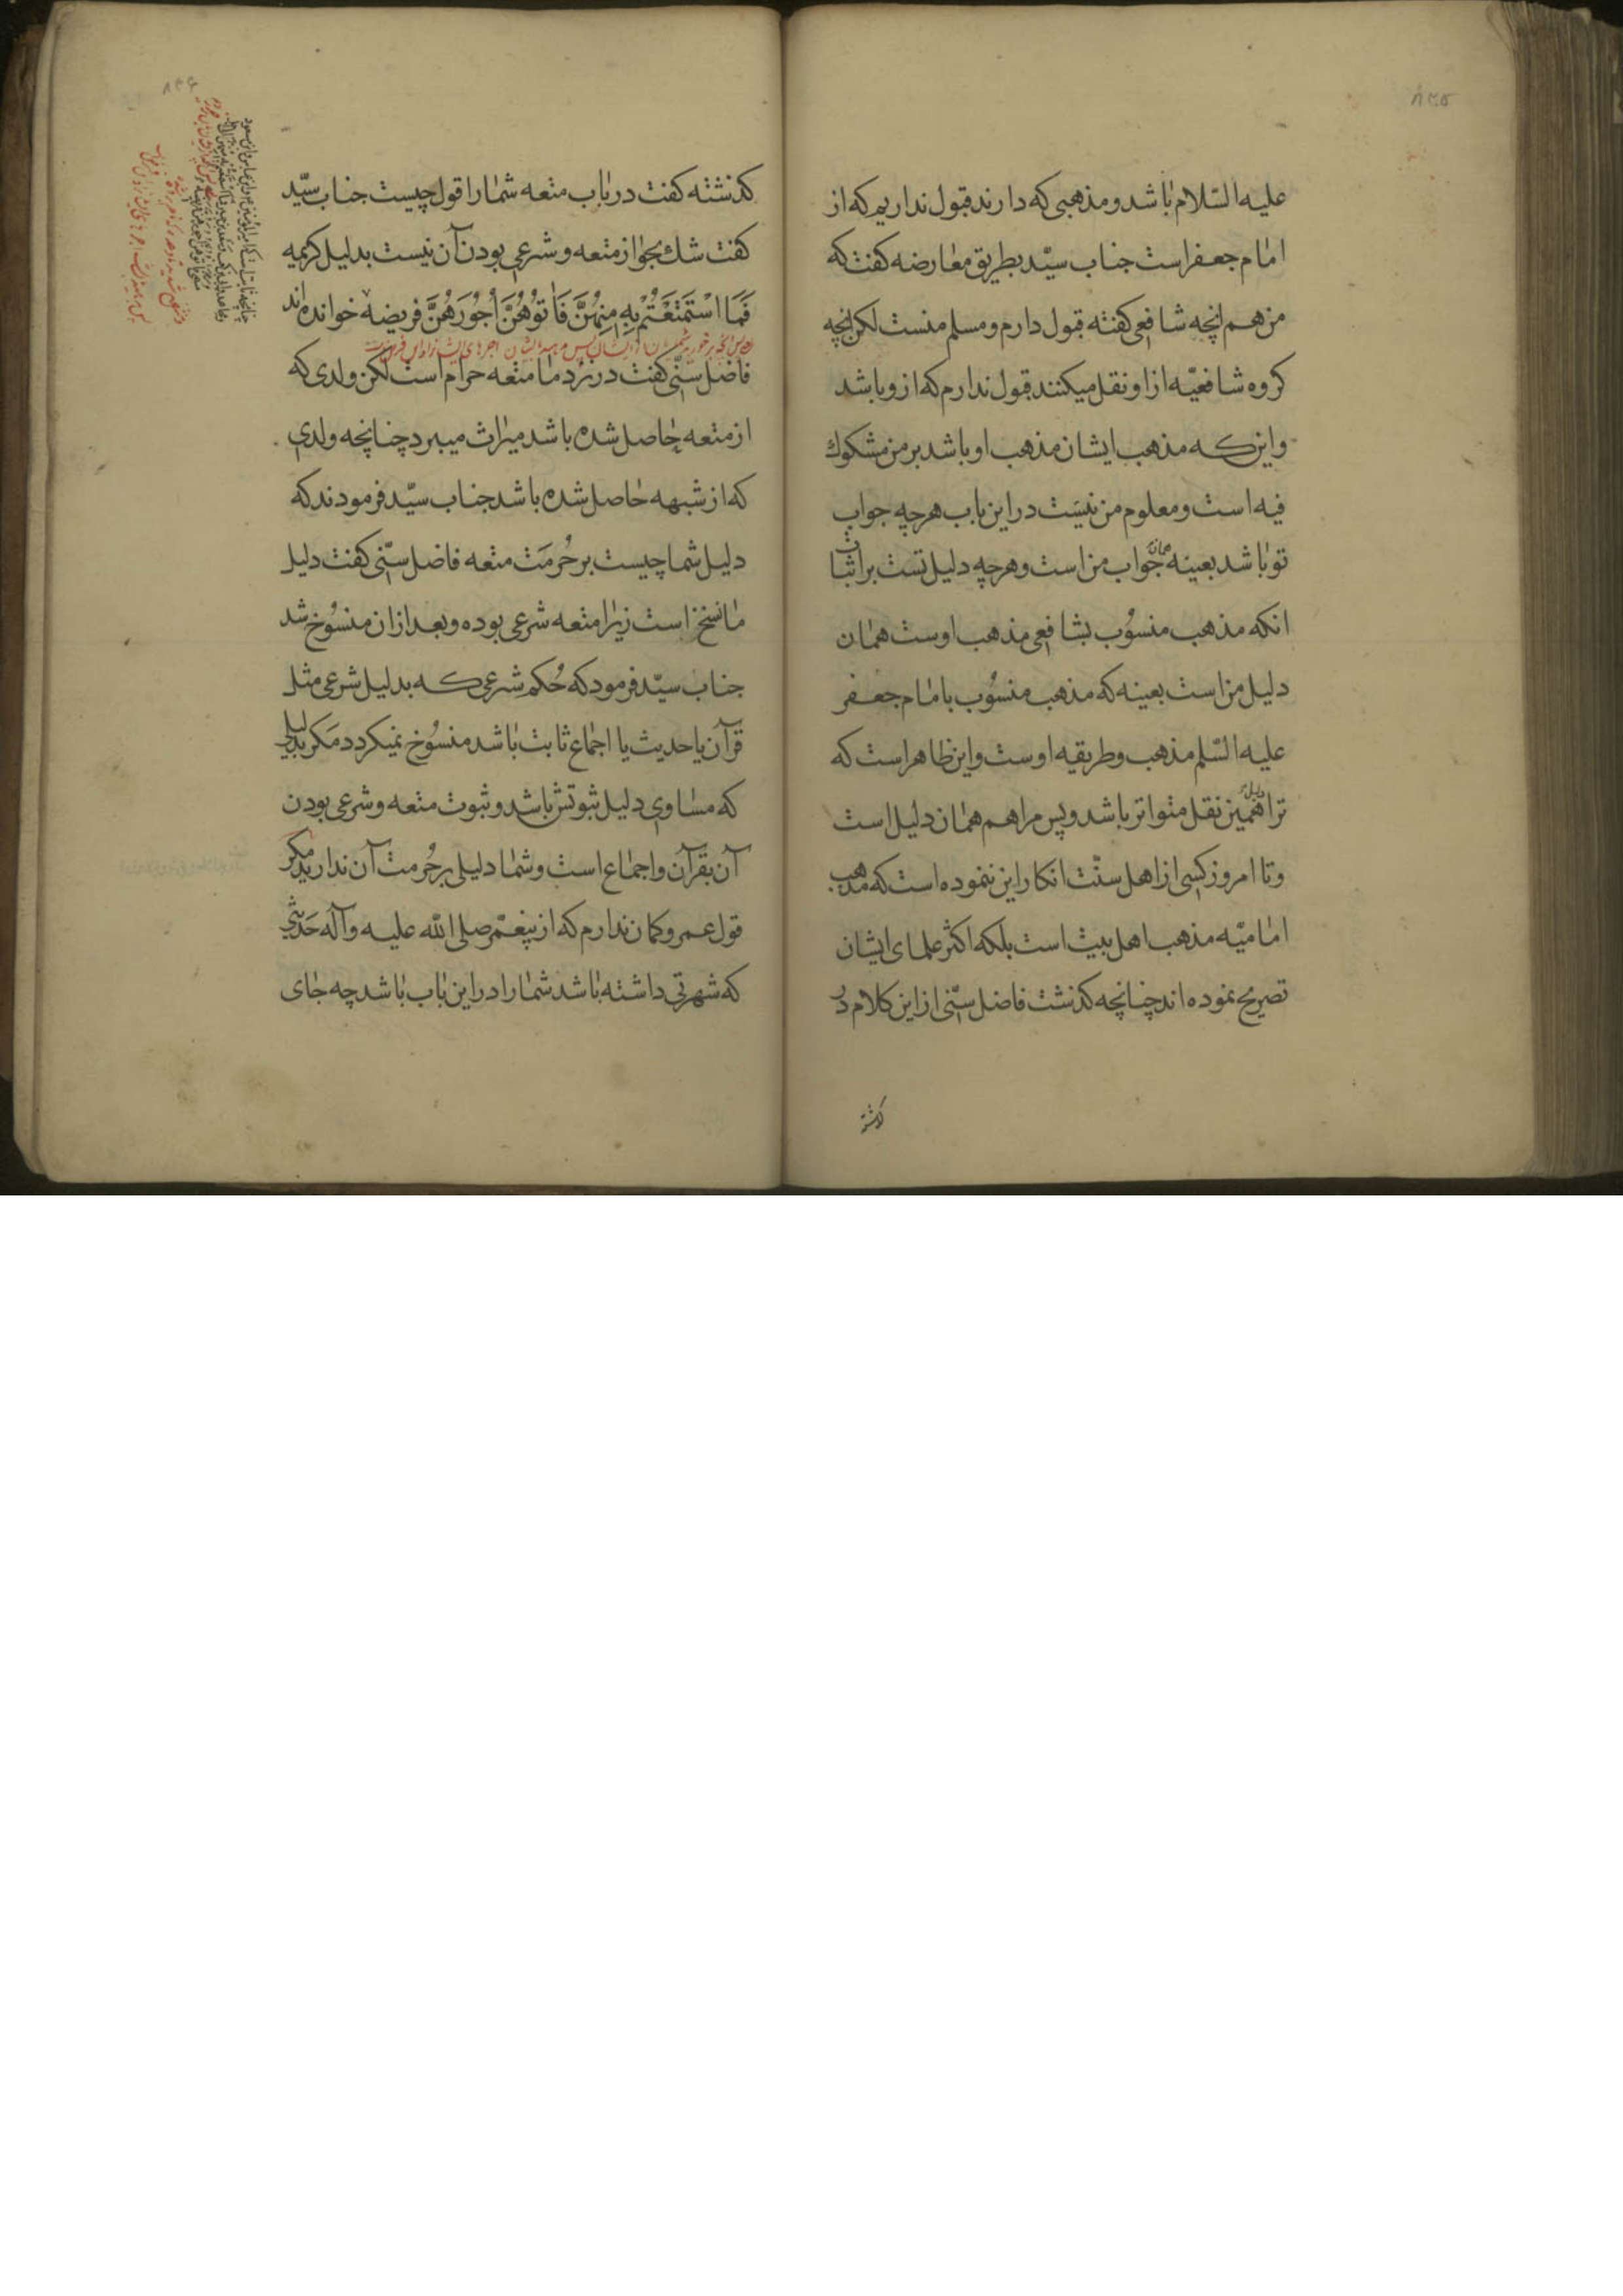 ۸۳۵
علیه السّلام باشد و مذهبی که دارند قبول نداریم که از
امام جعفر است جناب سیّد بطریق معارضه کفت که
من هم انچه شافعی کفته قبول دارم و مسلم منست لکن انچه
کروه شافعیّه از او نقل میکنند قبول ندارم که ازو باشد
و این که مذهب ایشان مذهب او باشد بر من مشکوك
فیه است و معلوم من نیست در این باب هرچه جواب
تو باشد بعینه همان جواب من است و هرچه دلیل تست بر اثبات
انکه مذهب منسوُب بشافعی مذهب اوست همان
دلیل من است بعینه که مذهب منسوُب بامام جعفر
علیه السّلم مذهب و طریقه اوست و این ظاهر است که
ترا دلیل همین نقل متواتر باشد و پس مرا هم همان دلیل است
و تا امروز کسی از اهل سنّت انکار این ننموده است که مذهب
امامیّه مذهب اهل بیت است بلکه اکثر علمای ایشان
تصریح نموده اند چنانچه کذشت فاضل سنّی از این کلام در
کذشته
۸۳۶
کذشته کفت در باب متعه شما را قول چیست جناب سیّد
کفت شك بجواز متعه و شرعی بودن آن نیست بدلیل کریمه
فَمَا اسْتَمْتَعْتُمْ بِهِ مِنهُنَّ فَاٰتوُهُنَّ اُجُوُرَهُنَّ فریضه خوانده‌اند
فاضل سنّی کفت در نزد ما متعه حرام است لکن ولدی که
از متعه حاصل شده باشد میراث میبرد چنانچه ولدی
که از شبهه حاصل شده باشد جناب سیّد فرمودند که
دلیل شما چیست بر حُرمَت متعه فاضل سنّی کفت دلیل
ما نسخ است زیرا متعه شرعی بوده و بعد ازان منسوُخ شد
جناب سیّد فرمود که حُکم شرعی که بدلیل شرعی مثل
قرآن یا حدیث یا اجماع ثابت باشد منسوُخ نمیکردد مَکر بدلیلی
که مساوی دلیل ثبوتش باشد و ثبوت متعه و شرعی بودن
آن بقرآن و اجماع است و شما دلیلی بر حُرمت آن ندارید مکر
قول عمر و کمان ندارم که از پیغمّبر صلی الله علیه و آله حَدیثی
که شهرتی داشته باشد شما را در این باب باشد چه جای